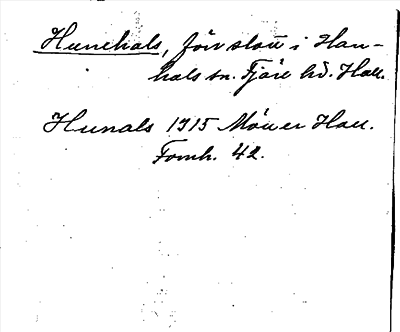 Hunehals, förslott i Han-
hals sn. Fjäre hd. Hall.
Hunals 1715 Möller Hall.
Fornh. 42.